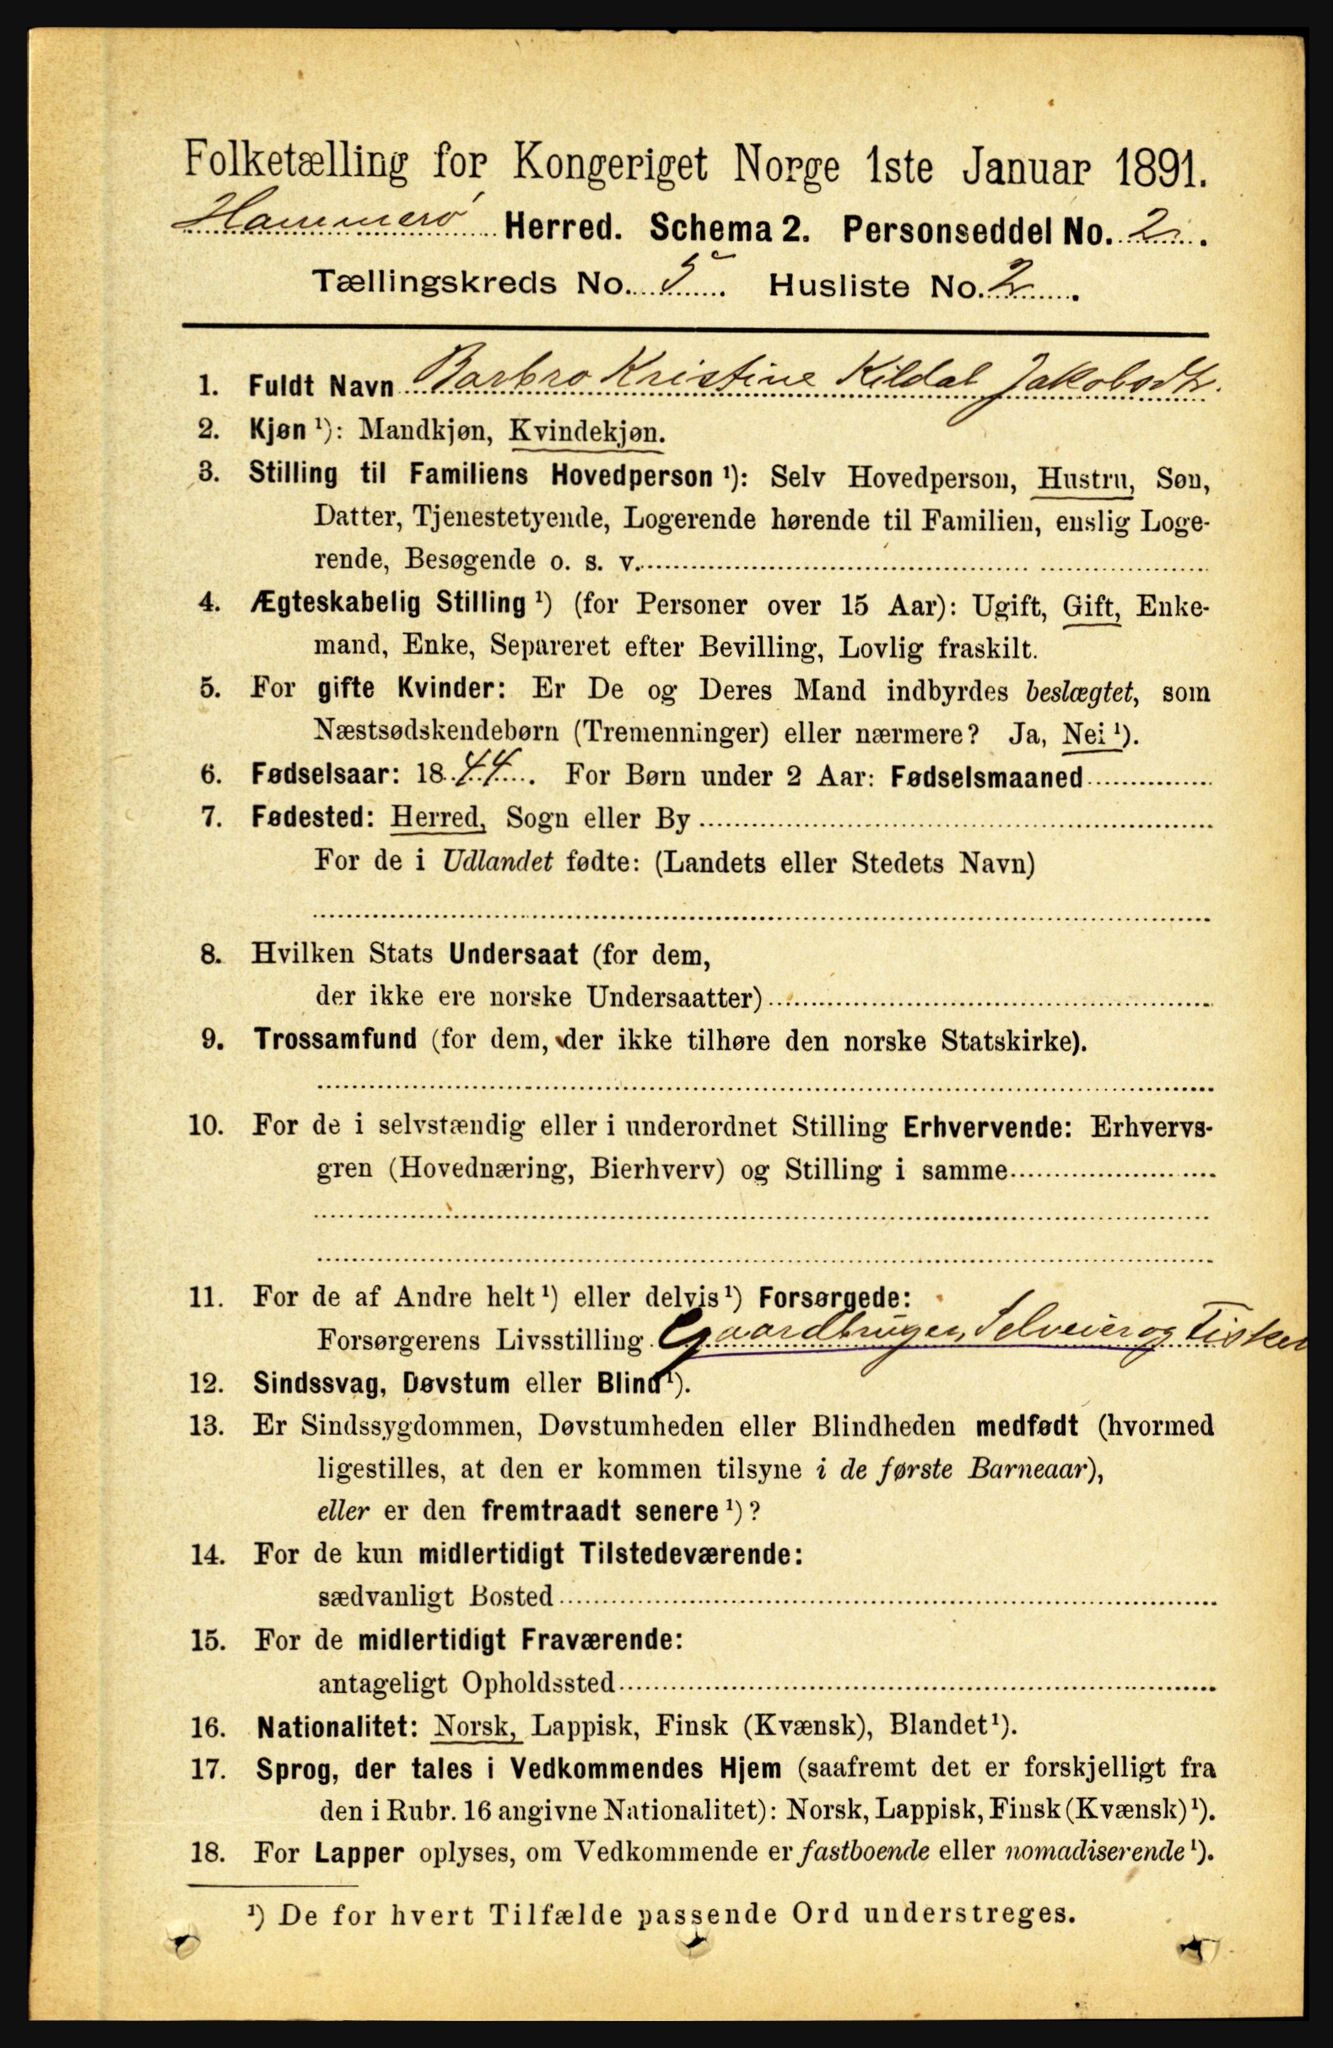 Folketælling for Kongeriget Norge 1ste Januar 1891.
Hammerø Herred. Schema 2. Personseddel No. 2.
Tællingskreds No. 5. Husliste No. 2.
1. Fuldt Navn Barbro Kristine Kildal Jakobsdtr.
2. Kjøn ¹): Mandkjøn, Kvindekjøn.
3. Stilling til Familiens Hovedperson ¹): Selv Hovedperson, Hustru, Søn,
Datter, Tjenestetyende, Logerende hørende til Familien, enslig Loge-
rende, Besøgende o. s. v.
4. Ægteskabelig Stilling ¹) (for Personer over 15 Aar): Ugift, Gift, Enke-
mand, Enke, Separeret efter Bevilling, Lovlig fraskilt.
5. For gifte Kvinder: Er De og Deres Mand indbyrdes beslægtet, som
Næstsødskendebørn (Tremenninger) eller nærmere? Ja, Nei ¹).
6. Fødselsaar: 1844. For Børn under 2 Aar: Fødselsmaaned
7. Fødested: Herred, Sogn eller By
For de i Udlandet fødte: (Landets eller Stedets Navn)
8. Hvilken Stats Undersaat (for dem,
der ikke ere norske Undersaatter)
9. Trossamfund (for dem, der ikke tilhøre den norske Statskirke).
10. For de i selvstændig eller i underordnet Stilling Erhvervende: Erhvervs-
gren (Hovednæring, Bierhverv) og Stilling i samme
11. For de af Andre helt ¹) eller delvis ¹) Forsørgede:
Forsørgerens Livsstilling Gaardbruger, Selveier og Fisker
12. Sindssvag, Døvstum eller Blind ¹).
13. Er Sindssygdommen, Døvstumheden eller Blindheden medfødt (hvormed
ligestilles, at den er kommen tilsyne i de første Barneaar),
eller er den fremtraadt senere ¹)?
14. For de kun midlertidigt Tilstedeværende:
sædvanligt Bosted
15. For de midlertidigt Fraværende:
antageligt Opholdssted
16. Nationalitet: Norsk, Lappisk, Finsk (Kvænsk), Blandet ¹).
17. Sprog, der tales i Vedkommendes Hjem (saafremt det er forskjelligt fra
den i Rubr. 16 angivne Nationalitet): Norsk, Lappisk, Finsk (Kvænsk) ¹).
18. For Lapper oplyses, om Vedkommende er fastboende eller nomadiserende ¹).
¹) De for hvert Tilfælde passende Ord understreges.